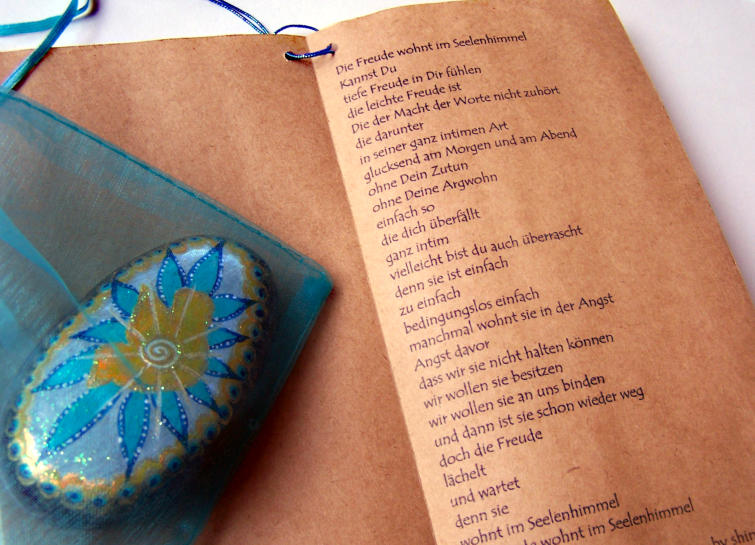 Die Freude wohnt im Seelenhimmel
Kannst Du
tiefe Freude in Dir fühlen
die leichte Freude ist
Die der Macht der Worte nicht zuhört
die darunter
in seiner ganz intimen Art
glucksend am Morgen und am Abend
ohne Dein Zutun
ohne Deine Argwohn
einfach so
die dich überfällt
ganz intim
vielleicht bist du auch überrascht
denn sie ist einfach
zu einfach
bedingungslos einfach
manchmal wohnt sie in der Angst
Angst davor
dass wir sie nicht halten können
wir wollen sie besitzen
wir wollen sie an uns binden
und dann ist sie schon wieder weg
doch die Freude
lächelt
und wartet
denn sie
wohnt im Seelenhimmel
wohnt im Seelenhimmel
by